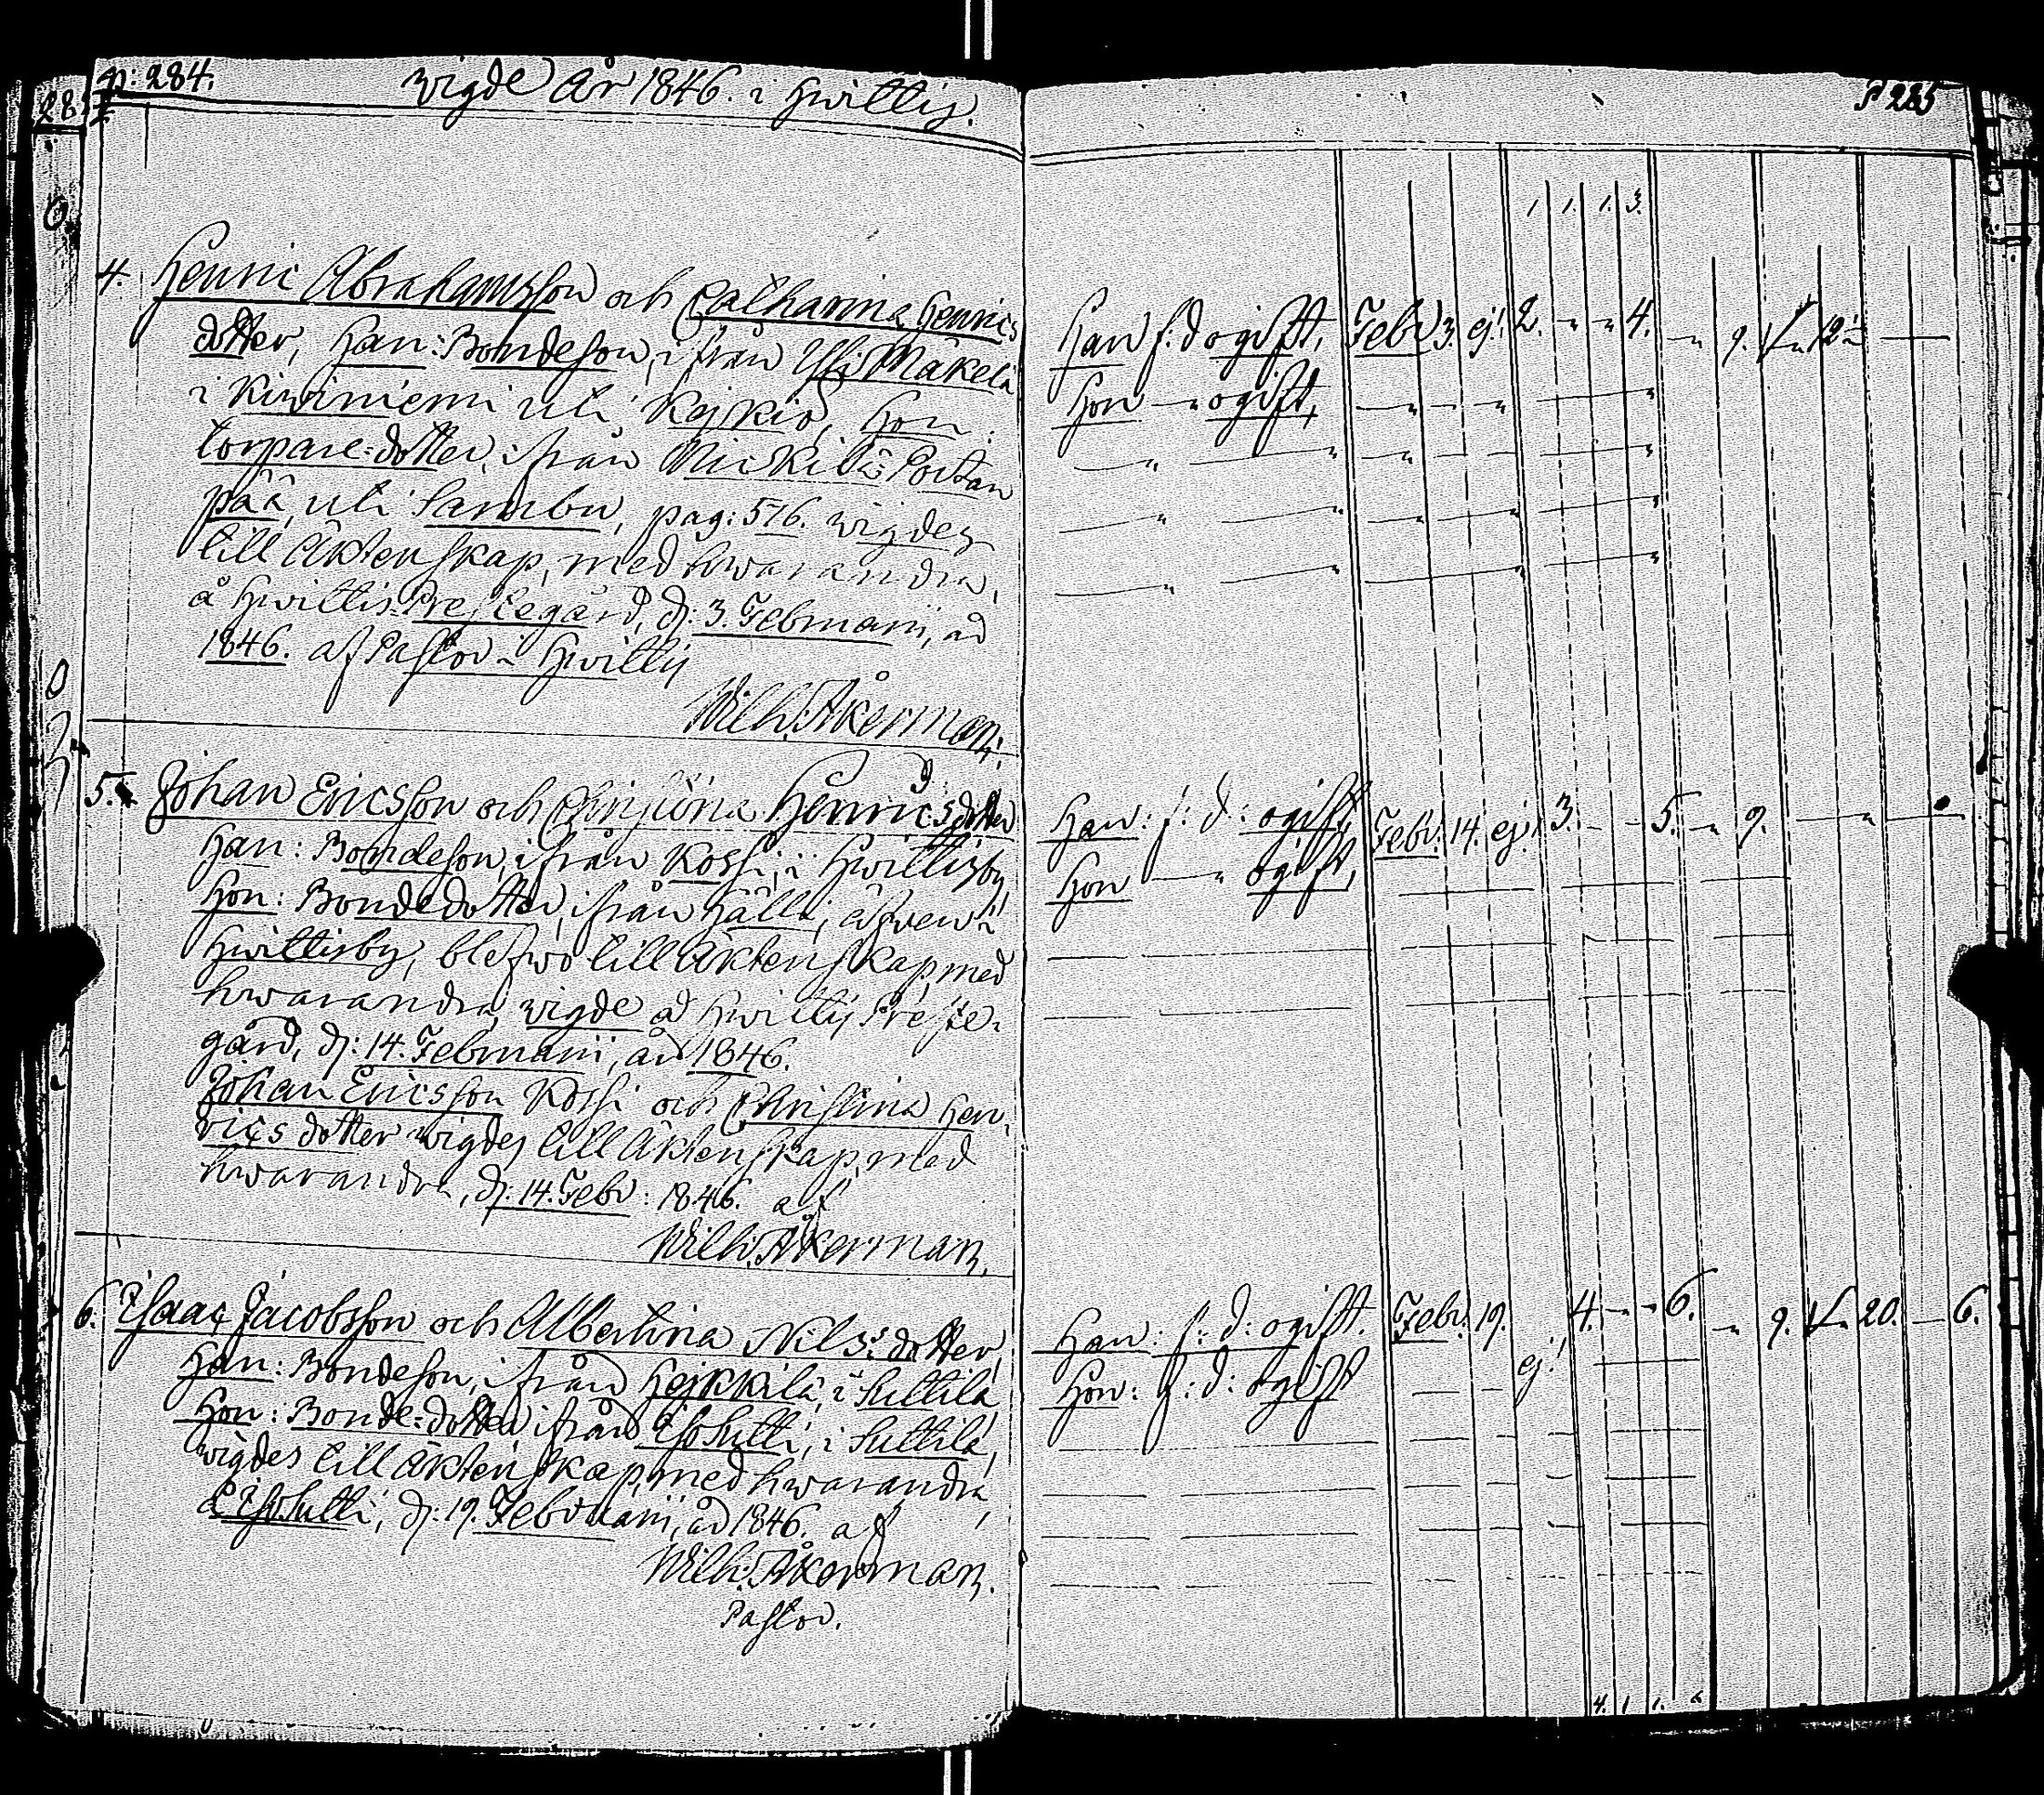 p: 284.
wigde År 1846. i Hwittis.
4. Henric Abrahamsson och Catharina Henrics
dotter, Han: Bondeson, ifrån Yli Mäkelä
i Kiwiniemi uti Kejkiö, Hon:
torpare-dotter, ifrån Mickilä Portan
pää, uti Sambu, pag: 576. wigdes
till Äktenskap, med hwarandra,
å Hwittis Prestegård, d: 3. Februarii, åd
1846. af Pastor i Hwittis
Wilh: Åkerman.
5. Johan Ericsson och Christina Henricsdotter
Han: Bondeson, ifrån Kossi, i Hwittisby,
Hon: Bondedotter, ifrån Hälli, äfwen i
Hwittisby, blefwo till Äktenskap, med
hwarandra wigde å Hwittis Preste-
gård, d: 14. Februarii, åd 1846.
Johan Ericsson Kossi och Christina Hen-
rics dotter wigdes till Äktenskap, med
hwarandra, d: 14. Febr: 1846. af
Wilh: Åkerman.
6. Isaac Jacobsson och Albertina Nils: dotter,
Han: Bondeson, ifrån Hejkkilä, i Suttila
Hon: Bonde-dotter ifrån Iso Sutti, i Suttila,
wigdes till Äktenskap, med hwarandra,
å Iso Sutti, d: 19. Februarii, åd 1846. af
Wilh: Åkerman.
Pastor.
P 285
1 1. 1. 3.
Han f: d ogift, Febr 3. ej! 2. 4. 9. 12
Hon ogift,
Han: f: d: ogift Febr: 14. ej! 3. 5. 9.
Hon ogift,
Han: f: d: ogift. Febr. 19. 4. 6. 9. 20. 6.
Hon: f: d: ogift ej!
4. 1 1. 6